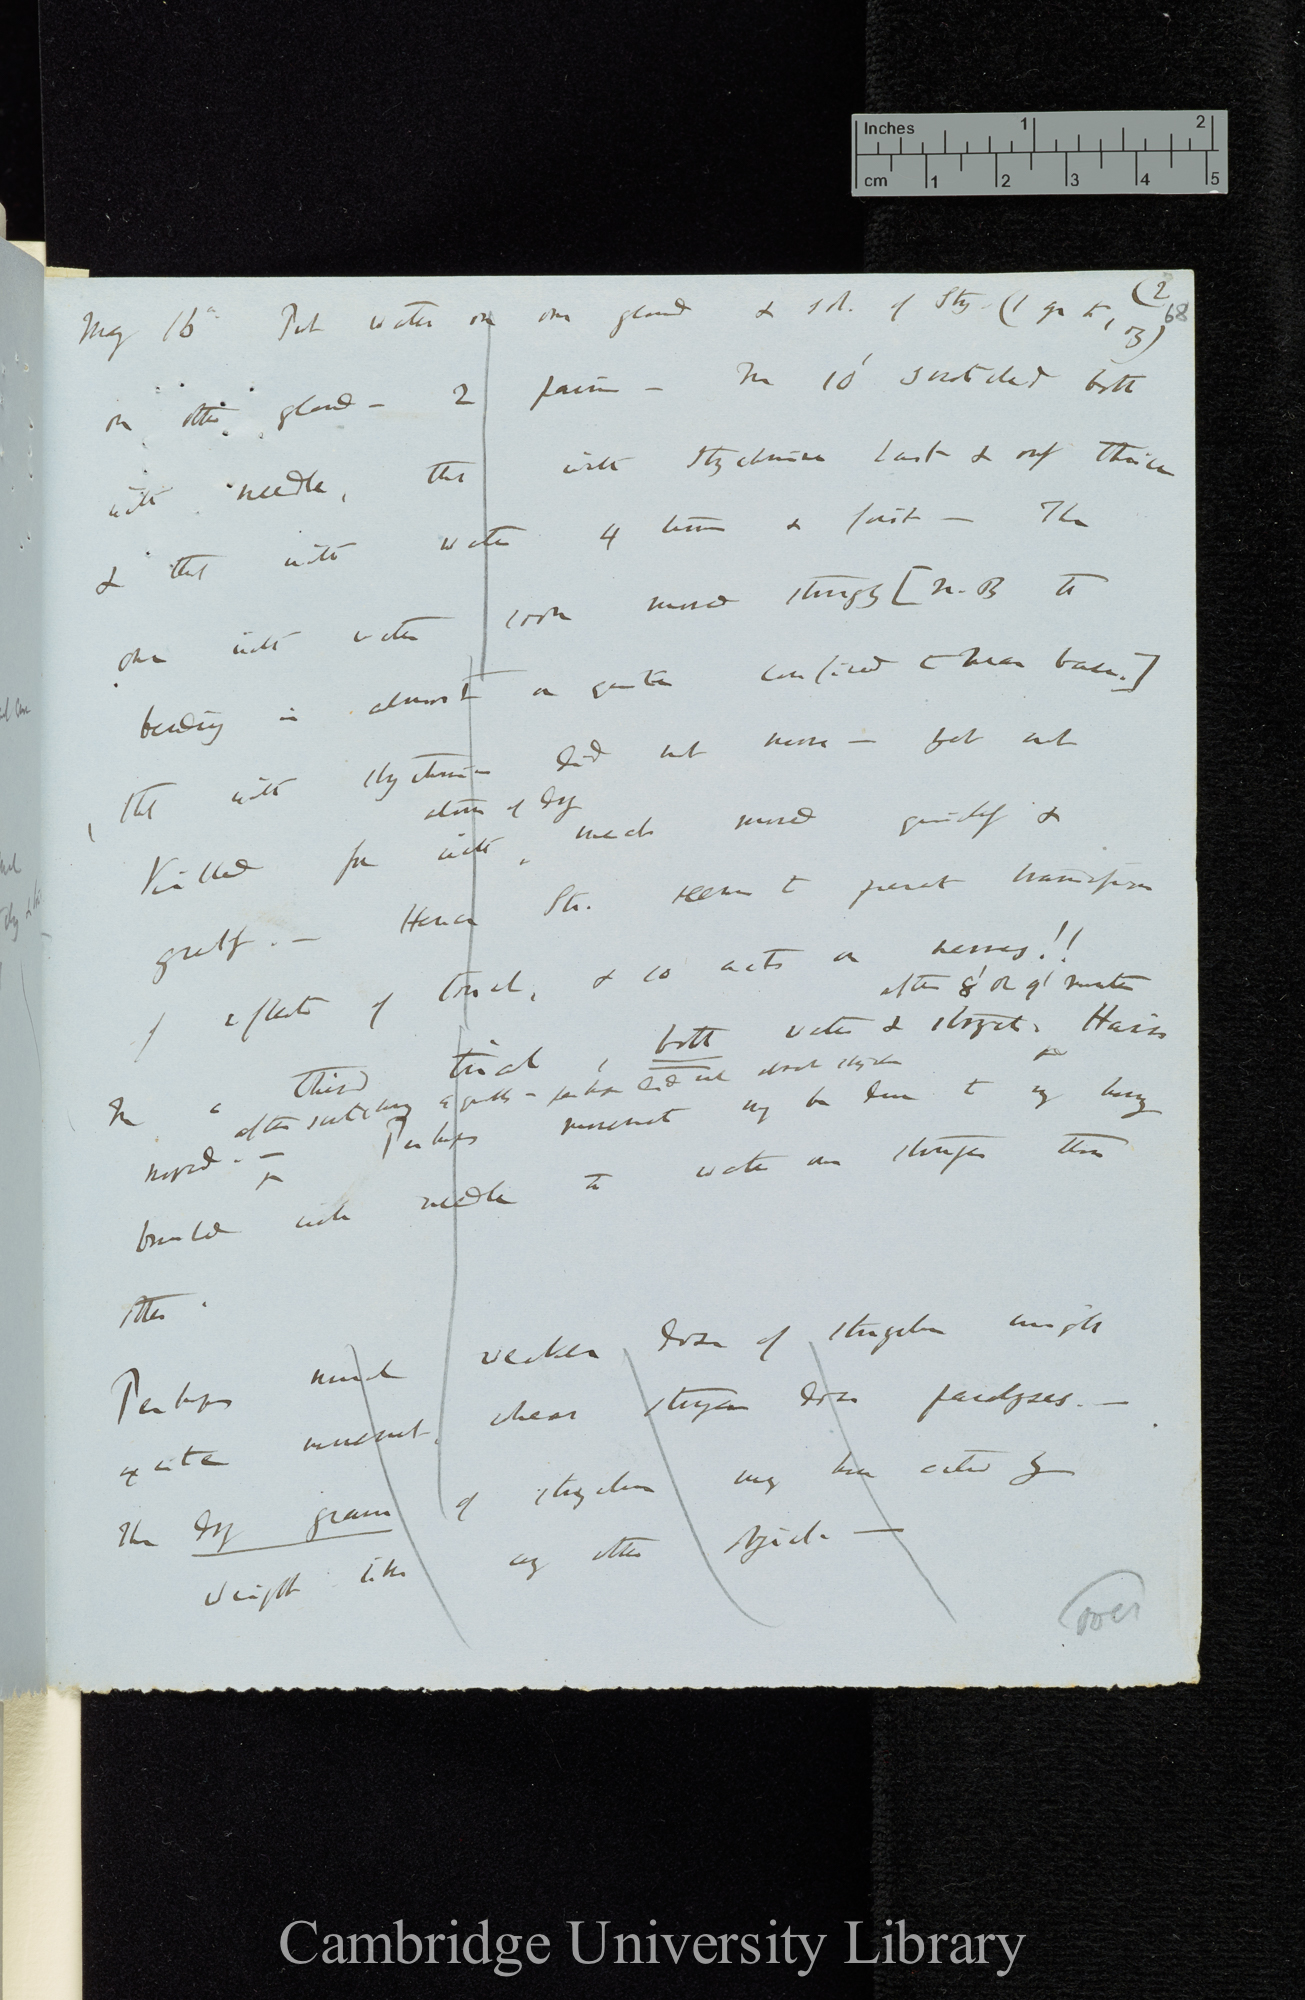 (2
68
May 16th Put water on one gland & sol. of Sty. (1 gr to 1 oz)
on other gland — 2 pairs — In 10' scratched both
with needle, that with Strychnine last & only thrice
& that with water 4 times & first — The
one with water soon moved strongly [N.B the
bending is almost or quite confined to near base.]
that with strychnine did not move — yet not
killed for with atom of dry meat moved quickly &
greatly. — Hence Str. seems to prevent transmission
of effects of touch, & so acts on nerves!!
In a third trial, both water & strych. Hairs after 8' or 9' minutes
after scratching equally — perhaps did not absorb strychnine
moved. — Perhaps movement may be due to my having
bruised with needle the water one stronger than
other.
Perhaps much weaker dose of strychnine might
excite movement, where stronger dose paralyses. —
The dry grain of strychnine may have acted by
weight like any other object —
over
Inches 1 2
cm 1 2 3 4 5
Cambridge University Library